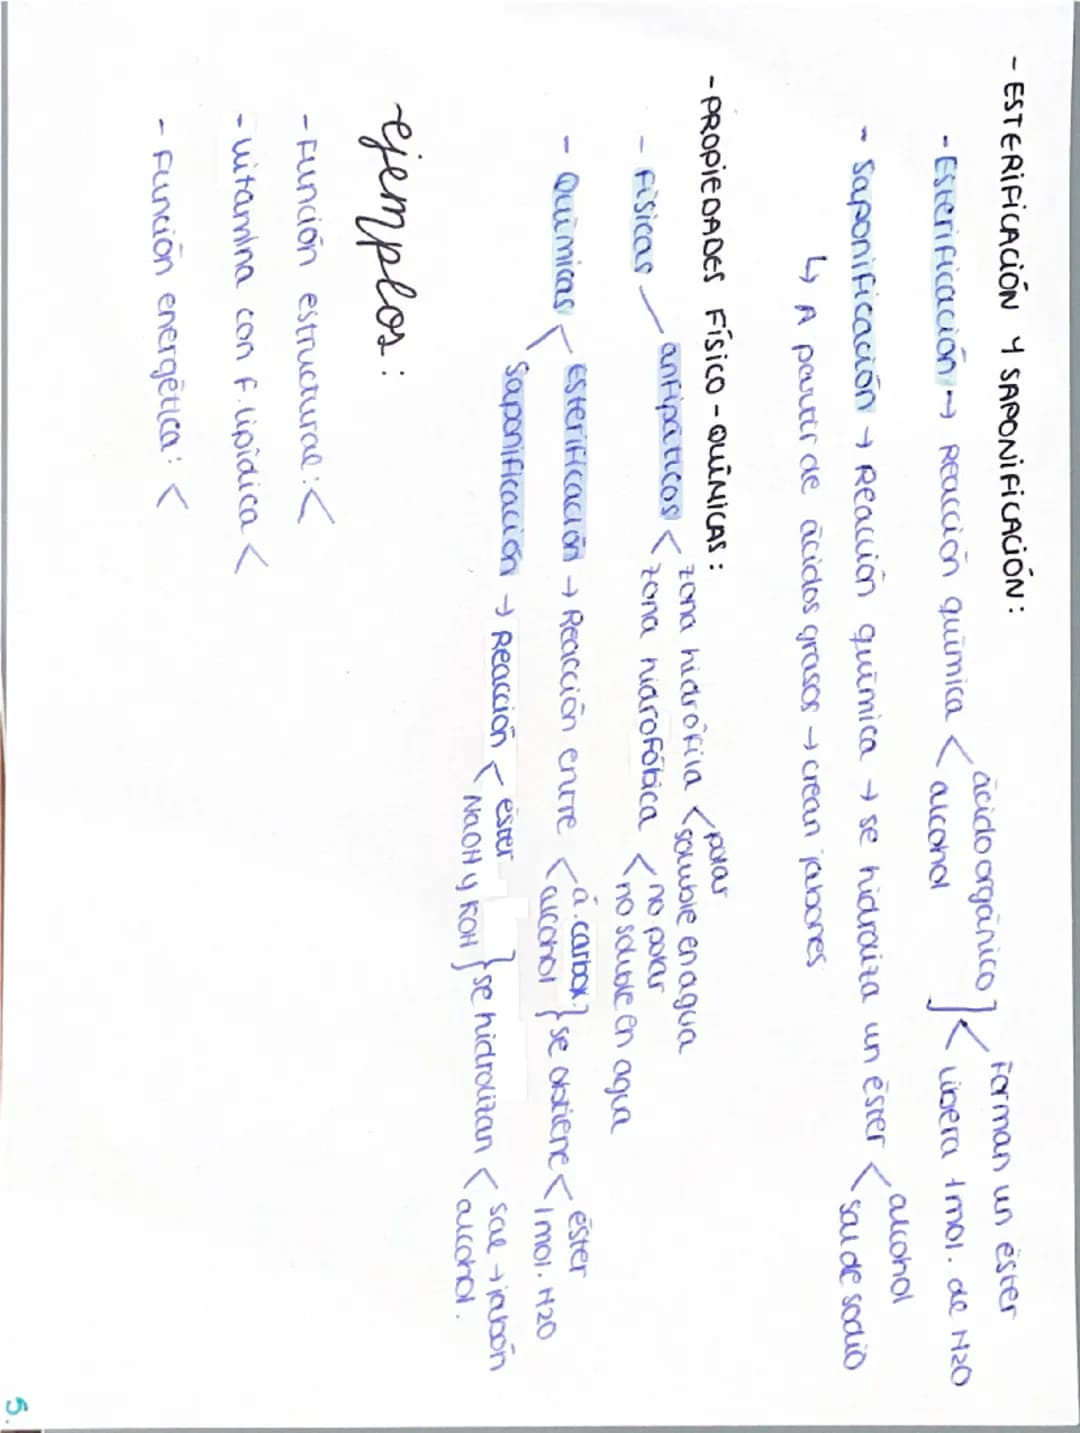 - ESTERIFICACIÓN Y SAPONIFICACIÓN:
- Esterificación → Reacción química < ácido orgánico ] < Forman un éster
alcohol libera 1 mol. de H2O
- Saponificación → Reacción química → se hidroliza un éster < alcohol
sal de sodio
↳ A partir de ácidos grasos → crean jabones
- PROPIEDADES FÍSICO - QUÍMICAS:
- Físicas — anfipáticos < zona hidrófila < polar
soluble en agua
zona hidrofóbica < no polar
no soluble en agua
- Químicas < Esterificación → Reacción entre < á. carbox. } se obtiene < éster
alcohol 1 mol. H2O
Saponificación → Reacción < éster } se hidrolizan < sal → jabón
NaOH y KOH alcohol.
- ejemplos:
- Función estructural: <
- vitamina con f. lipídica <
- Función energética: <
5.